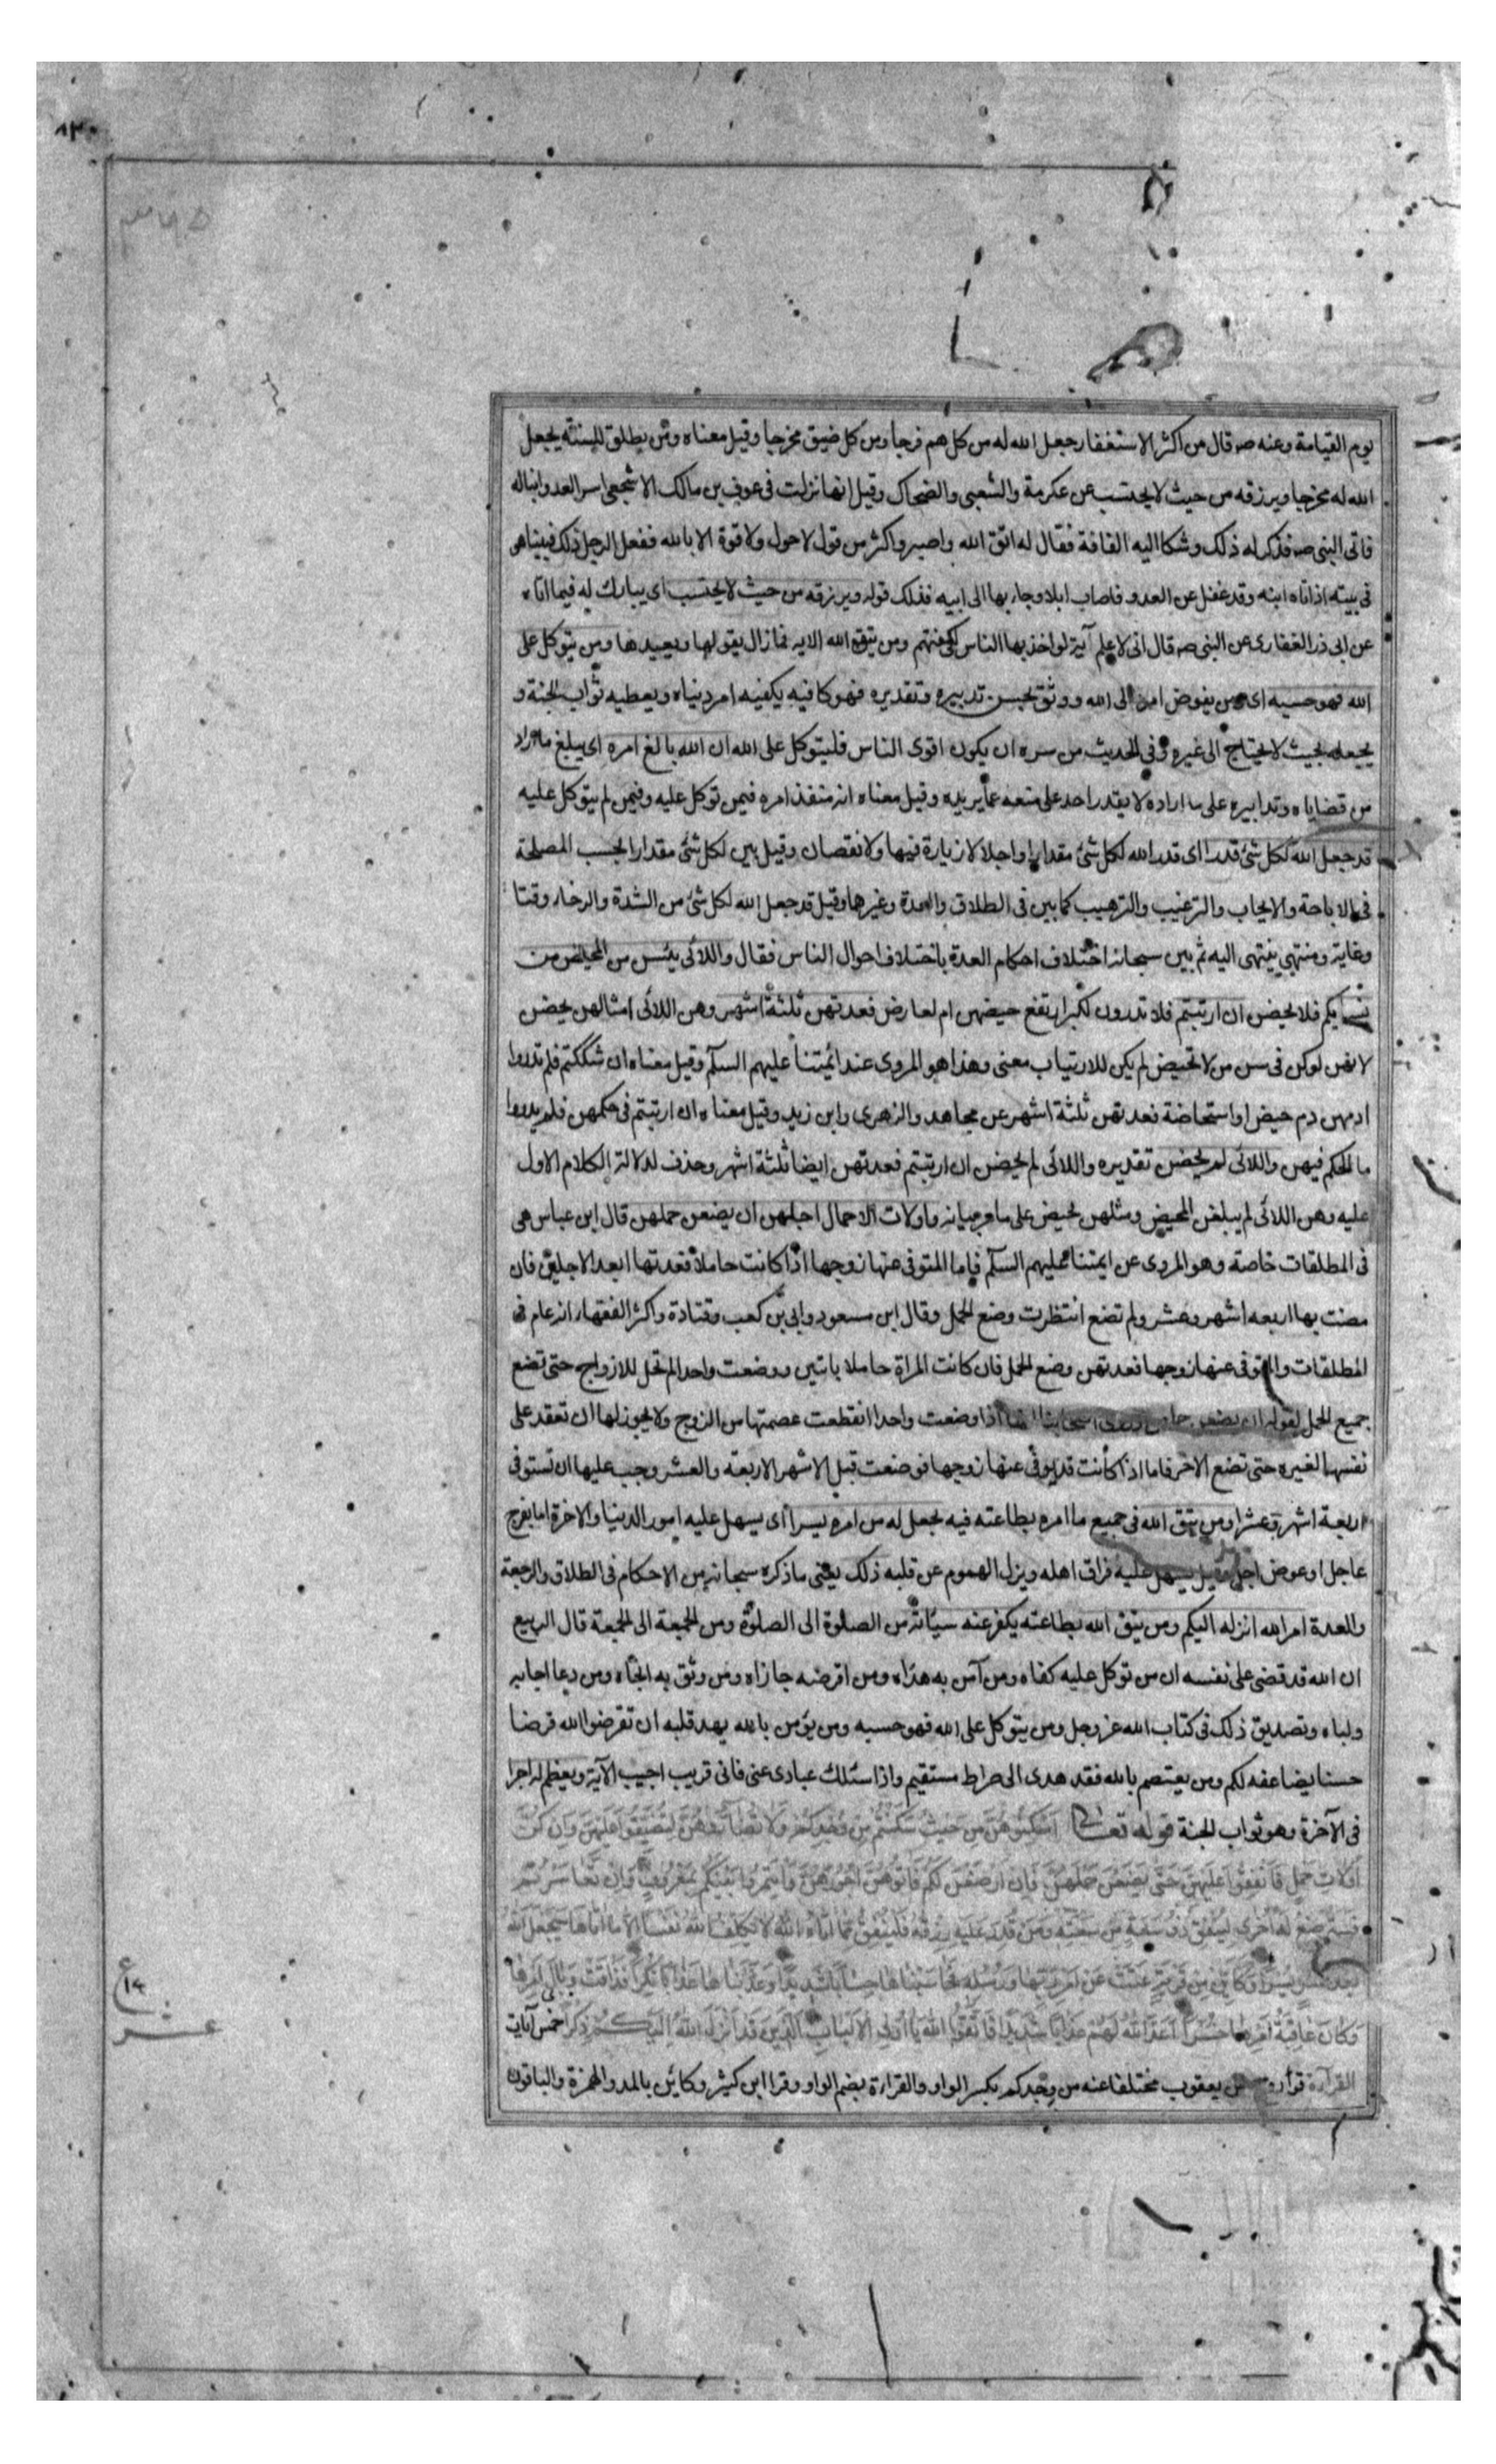 يوم القيامة وعنه صه قال من اكثر الاستغفار جعل الله له من كل هم فرجا ومن كل ضيق مخرجا وقيل معناه ومن يطلق للسنته يجعل
الله له مخرجا ويرزقه من حيث لا يحتسب عن عكرمة والشعبى والضحاك وقيل انها نزلت فى عوف بن مالك الاشجعى اسر العدو ابنا له
فاتى النبى صه فذكر له ذلك وشكا اليه الفاقة فقال له اتق الله واصبر واكثر من قول لا حول ولا قوة الا بالله ففعل الرجل ذلك فبينا هى
فى بيته اذ اتاه ابنه وقد غفل عن العدو فاصاب ابلا وجاء بها الى ابيه فذلك قوله ويرزقه من حيث لا يحتسب اى يبارك له فيما اتاه
عن ابى ذر الغفارى عن النبى صه قال انى لا علم آية لو اخذ بها الناس لكفتهم ومن يتق الله الايه فما زال يقولها ويعيدها ومن يتوكل على
الله فهو حسبه اى من يفوض امره الى الله ووثق بحسن تدبيره وتقديره فهو كافيه يكفيه امر دنياه ويعطيه ثواب الجنة و
يجعله بحيث لا يحتاج الى غيره وفى الحديث من سره ان يكون اقوى الناس فليتوكل على الله ان الله بالغ امره اى يبلغ ما اراد
من قضاياه وتدابيره على ما اراده لا يقدر احد على منعه عما يريده وقيل معناه انه منفذ امره فيمن توكل عليه وفيمن لم يتوكل عليه
قد جعل الله لكل شئ قدرا اى قدر الله لكل شئ مقدارا واجلا لا زيارة فيها ولا نقصان وقيل بين لكل شئ مقدارا بحسب المصلحة
فى الاباحة والايجاب والترغيب والترهيب كما بين فى الطلاق والعدة وغيرهما وقيل قد جعل الله لكل شئ من الشدة والرخاء وقتا
وغاية ومنتهى ينتهى اليه ثم بين سبحانه اختلاف احكام العدة باختلاف احوال الناس فقال واللائى يئسن من المحيض من
نسايكم فلا يحضن ان ارتبتم فلا تدرون لكبر ارتفع حيضهن ام لعارض فعدتهن ثلثة اشهر وهن اللائى امثالهن يحضن
لانهن لو كن فى سن من لا تحيض لم يكن للارتياب معنى وهذا هو المروى عند ائمتنا عليهم السلم وقيل معناه ان شككتم فلم تدروا
ادمهن دم حيض او استحاضة فعدتهن ثلثة اشهر عن مجاهد والزهرى وابن زيد وقيل معناه ان ارتبتم فى حكمهن فلم يدروا
ما الحكم فيهن واللائى لم يحضن تقديره واللائى لم يحضن ان ارتبتم فعدتهن ايضا ثلثة اشهر وحذف لدلالة الكلام الاول
عليه وهن اللائى لم يبلغن المحيض ومثلهن تحيض على ما مر بيانه واولات الاحمال اجلهن ان يضعن حملهن قال ابن عباس هى
فى المطلقات خاصة وهو المروى عن ايمتنا عليهم السلم فاما المتوفى عنها زوجها اذا كانت حاملا فعدتها ابعد الاجلين فان
مضت بها اربعه اشهر وعشر ولم تضع انتظرت وضع الحمل وقال ابن مسعود وابى بن كعب وقتادة واكثر الفقهاء انه عام فى
المطلقات والمتوفى عنها زوجها فعدتهن وضع الحمل فان كانت المراة حاملا باثنين ووضعت واحدا لم تحل للازواج حتى تضع
جميع الحمل لقوله ان يضعن حملهن اذا وضعت واحدا انقطعت عصمتها من الزوج ولا يجوز لها ان تعقد على
نفسها لغيره حتى تضع الاخر فاما اذا كانت قد توفى عنها زوجها فوضعت قبل الاشهر الاربعة والعشر وجب عليها ان تستوفى
اربعة اشهر وعشرا ومن يتق الله فى جميع ما امره بطاعته فيه يجعل له من امره يسرا اى يسهل عليه امور الدنيا والاخرة اما بفرج
عاجل او عوض اجل وقيل يسهل عليه فراق اهله ويزل الهموم عن قلبه ذلك يعنى ما ذكره سبحانه من الاحكام فى الطلاق والرجعة
والعدة امر الله انزله اليكم ومن يتق الله بطاعته يكفر عنه سيئاته من الصلوة الى الصلوة ومن الجمعة الى الجمعة قال الربيع
ان الله قد قضى على نفسه ان من توكل عليه كفاه ومن آمن به هداه ومن اقرضه جازاه ومن وثق به انجاه ومن دعا اجابه
ولباه وتصديق ذلك فى كتاب الله عز وجل ومن يتوكل على الله فهو حسبه ومن يؤمن بالله يهد قلبه ان تقرضوا الله قرضا
حسنا يضاعفه لكم ومن يعتصم بالله فقد هدى الى صراط مستقيم واذا سئلك عبادى عنى فانى قريب اجيب الآية ويعظم له اجرا
فى الآخرة وهو ثواب الجنة قوله تعالى اسكنوهن من حيث سكنتم من وجدكم ولا تضاروهن لتضيقوا عليهن وان كن
اولات حمل فانفقوا عليهن حتى يضعن حملهن فان ارضعن لكم فاتوهن اجورهن واتمروا بينكم بمعروف وان تعاسرتم
فسترضع له اخرى لينفق ذو سعة من سعته ومن قدر عليه رزقه فلينفق مما اتاه الله لا يكلف الله نفسا الا ما اتاها سيجعل الله
بعد عسر يسرا وكاين من قرية عتت عن امر ربها ورسله فحاسبناها حسابا شديدا وعذبناها عذابا نكرا فذاقت وبال امرها
وكان عاقبة امرها خسرا اعد الله لهم عذابا شديدا فاتقوا الله يا اولى الالباب الذين قد انزل الله اليكم ذكرا خمس آيات
القراءة قرأ روح عن يعقوب مختلفا عنه من وجدكم بكسر الواو والقراءة بضم الواو وقرا ابن كثير وكائن بالمد والهمزة والباقون
عشر